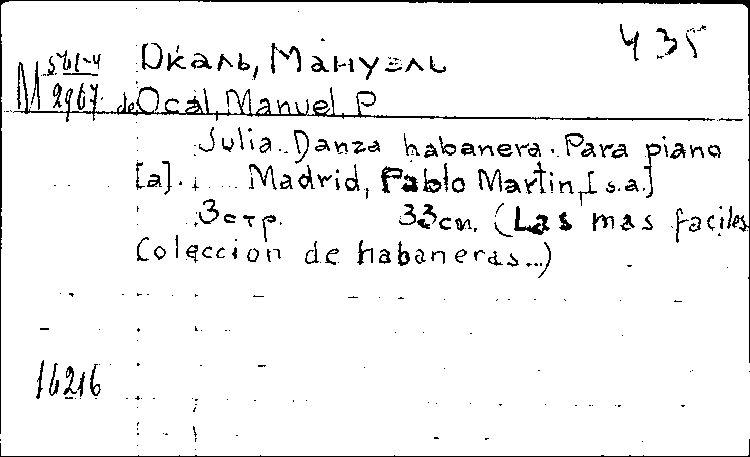 435
М 561-4
2967
Окаль, Мануэль
de Ocal, Manuel P
Julia. Danza habanera. Para piano
[a]. Madrid, Pablo Martin, [s.a.]
3 стр. 33 см. (Las mas faciles
Coleccion de habaneras...)
16216